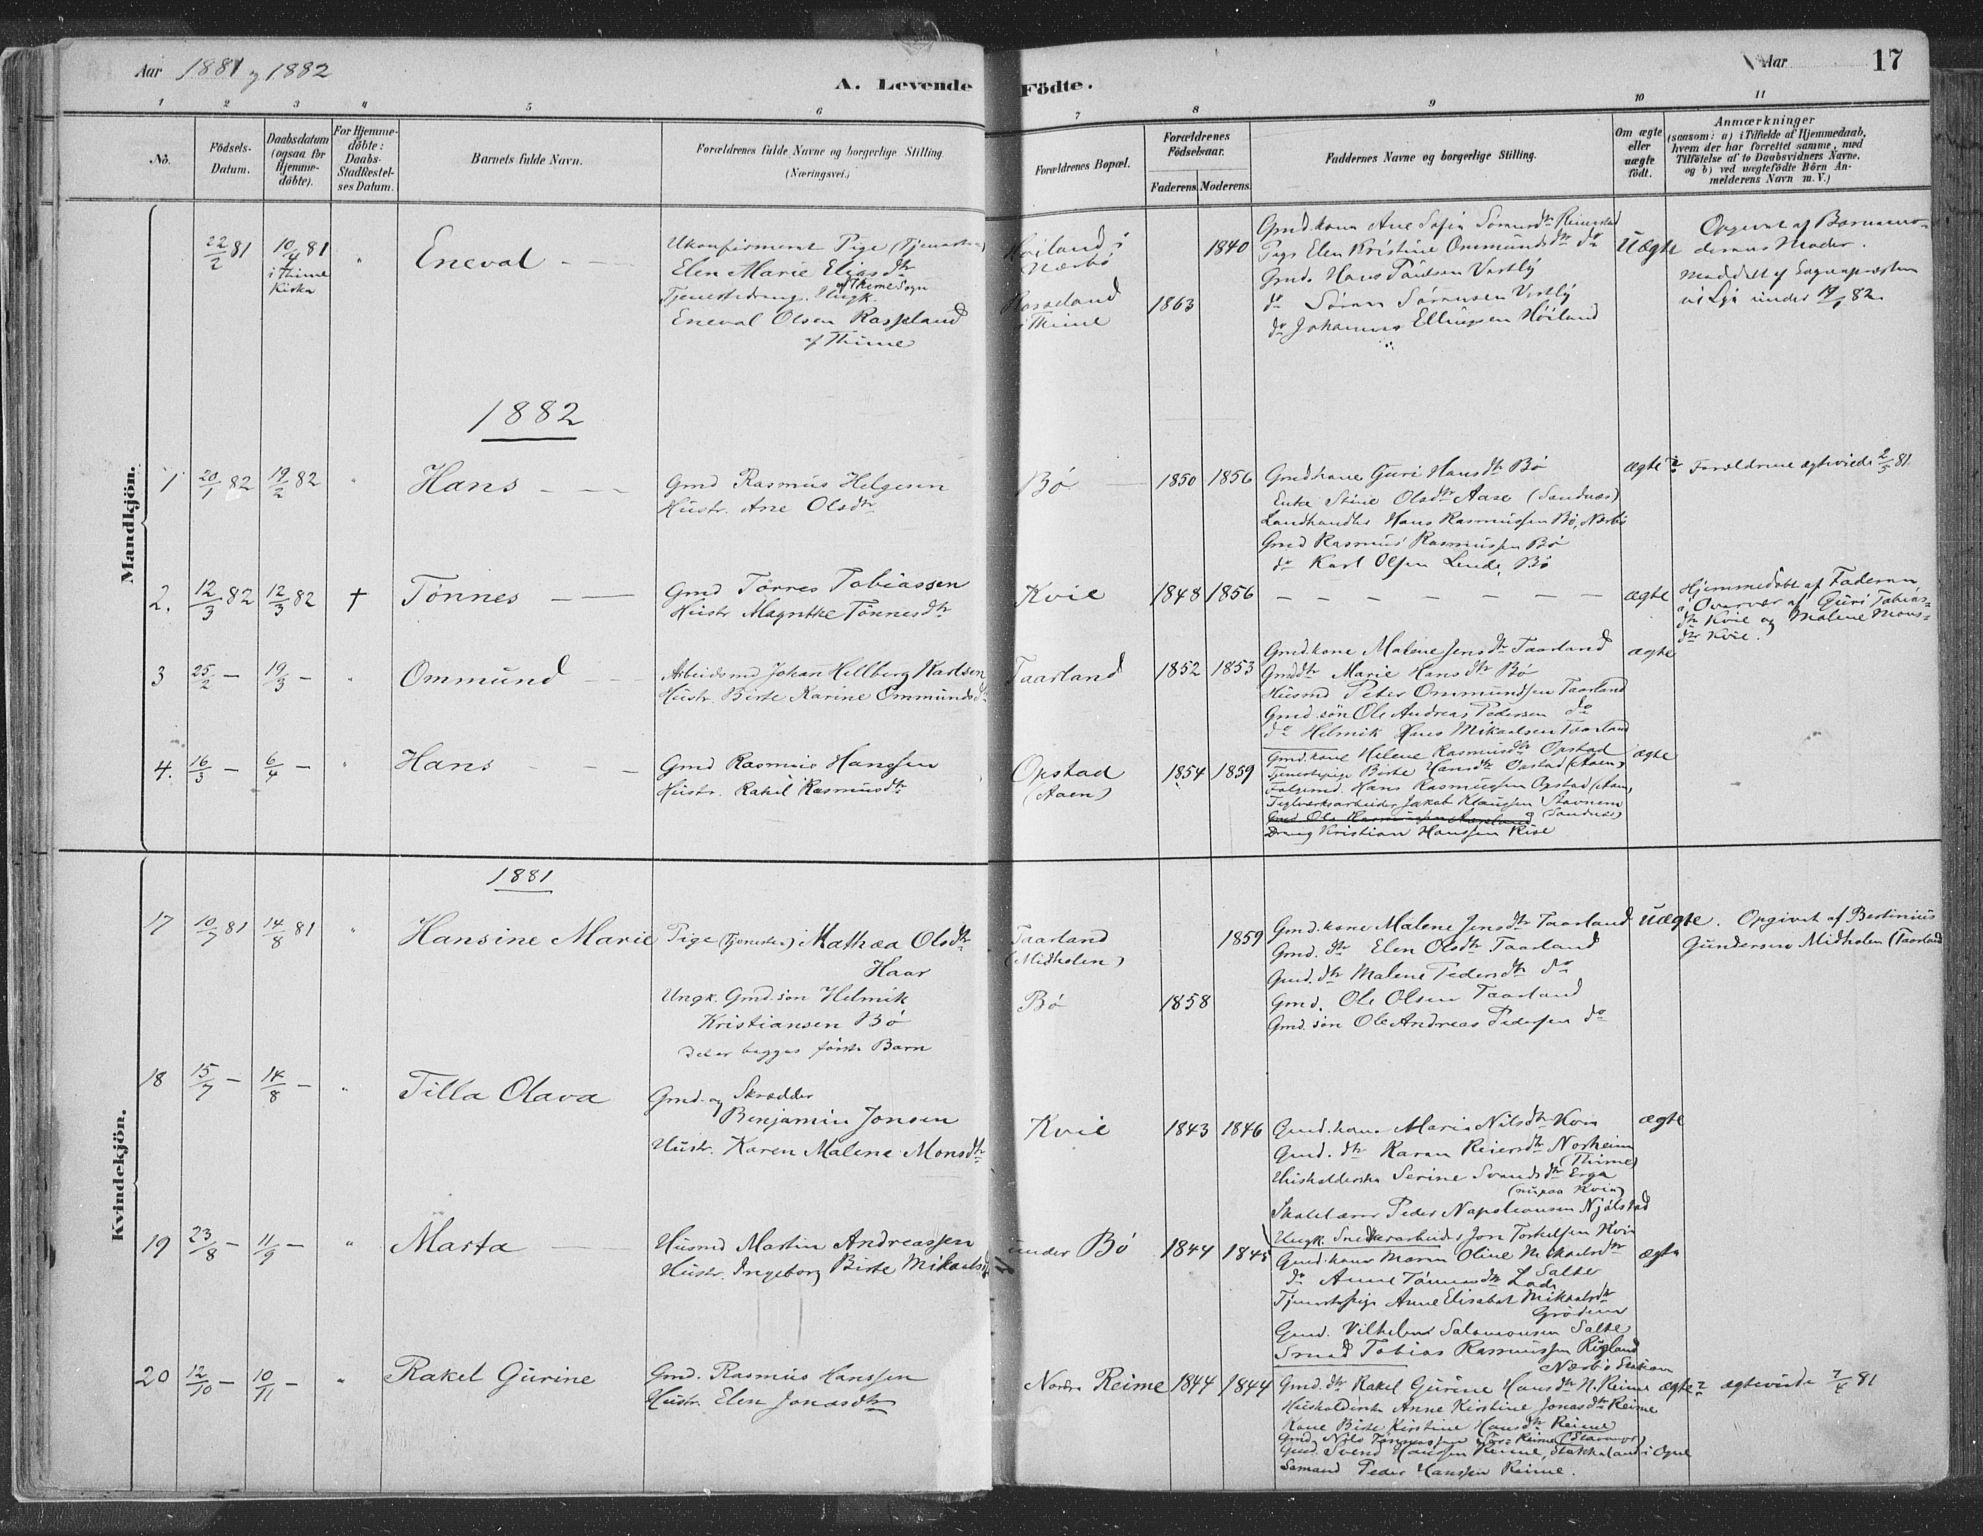 Aar 1881 og 1882
A. Levende Födte.
Aar
17
1 2 3 " 5 6 7 8 9 10 11
No.
Födsels-Datum.
Daabsdatum (ogsaa for Hjemme-döbte).
For Hjemme-döbte: Daabs-Stadfæstel-ses Datum.
Barnets fulde Navn.
Forældrenes fulde Navne og borgerlige Stilling.
(Næringsvei.)
Forældrenes Bopæl.
Forældrenes Födselsaar.
Faderens. Moderens.
Faddernes Navne og borgerlige Stilling.
Om ægte eller uægte födt.
Anmærkninger
(saasom: a) i Tilfælde af Hjemmedaab,
hvem der har forrettet samme, med
Tilföielse af to Daabsvidners Navne,
og b) ved uægtefödte Börn An-
melderens Navn m. V.)
Mandkjön.
22/2 81
10/4 81
i Thime
Kirke
"
Eneval
Ukonfirmeret Pige (Tjenestep)
Elen Marie Eliasdtr
af Thime Sogn
Tjenestedreng, Ungk.
Eneval Olsen Rosseland
af Thime
Høiland i
Nærbø
Rosseland
i Thime
1863
1840
Gmd.kone Ane Sofie Sørensdtr Reimestad
Pige Elen Kristine Ommundsdtr do
Gmd. Hans Paulsen Vestly
do Søren Sørensen Vestly
do Johannes Ellingsen Høiland
Uægte
Opgivet af Barnemo-
derens Moder.
Meddelt af Sognepresten
1882
1
20/1 82
19/2 82
"
Hans
Gmd Rasmus Helgesen
Hustr. Ane Olsdtr
Bø
1850 1856
Gmdkone Guri Hansdtr Bø
Enke Stine Olsdtr Aase (Sandnes)
Landhandler Hans Rasmussen Bø, Nærbø
Gmd Rasmus Rasmussen Bø
do Karl Olsen Lende, Bø
ægte 2
Forældrene ægteviede 2/5 81
2.
12/3 82
12/3 82
+
Tønnes
Gmd Tørres Tobiassen
Hustr Magnthe Tønnesdtr
Kvie
1848 1856
ægte
Hjemmedøbt af Faderen,
i Overvær af Guri Tobias-
dtr Kvie og Malene Mons-
dtr Kvie.
3
25/2 –
19/3 –
"
Ommund
Arbeidsmd Johan Hellberg Karlsen
Hustr Birte Karine Ommundsdtr
Taarland
1852 1853
Gmdkone Malene Jensdtr Taarland
Gmddtr Marie Hansdtr Bø
Husmd Peter Ommundssen Taarland
Gmd.søn Ole Andreas Pedersen do
do Helmik Hans Mikaelsen Taarland
ægte
4.
16/3 –
6/4 –
"
Hans
Gmd Rasmus Hanssen
Hustr. Rakel Rasmusdtr
Opstad
(Aaen)
1854 1859
Gmd.kone Helene Rasmusdtr Opstad
Tjenestepige Birte Hansdtr Opstad (Aaen)
Folgemd. Hans Rasmussen Opstad (Aaen)
Teglverksarbeider Jakob Klaussen Stavnem
(Sandnes)
Dreng Kristian Hanssen Kise
ægte
Kvindekjön.
1881
17
10/7 81
14/8 81
"
Hansine Marie
Pige (Tjenestep) Mathea Olsdtr
Haar
Ungk. Gmd.søn Helmik
Kristiansen Bø
Det er begges første Barn
Taarland
(Midholen)
Bø
1858
1859
Gmd.kone Malene Jensdtr Taarland
Gmd. dtr Elen Olsdtr Taarland
Gmd. dtr Malene Pedersdtr do
Gmd. Ole Olsen Taarland
Gmd. søn Ole Andreas Pedersen do
Uægte.
Opgivet af Bertinius
Gundersen Midholen (Taarland
18
15/7 –
14/8 –
"
Tilla Olava
Gmd. og Skrædder
Benjamin Jonsen
Hustr. Karen Malene Monsdtr
Kvie
1843 1846
Gmd.kone Maria Nilsdtr Kvie
Gmd. dtr Karen Reiersdtr Norheim
(Thime)
Husholderske Serine Svendsdtr Erga
Skolelærer Peder Napoleonsen Njølstad
Ungk. Snedkerarbeider Jon Torkelsen Kvie
ægte
19
23/8 –
11/9 –
"
Marta
Husmd Martin Andreassen
Hustr. Ingeborg Birte Mikaelsd
under Bø
1844 1845
Gmd.kone Maren Oline Mikaelsdtr
Salte
do Anne Tønnesdtr Lode
Tjenestepige Anne Elisabet Mikaelsdtr
Grødem
Gmd. Vilhelm Salomonsen Salte
Smed Tobias Rasmussen Rugland
Nærbø Station
ægte
20
12/10 –
10/11 –
"
Rakel Gurine
Gmd. Rasmus Hanssen
Hustr. Elen Jonasdtr
Nordre Reime
1844 1844
Gmd. dtr Rakel Gurine Hansdtr N. Reime
Husholderske Anne Kirstine Jonasdtr Reime
Kone Birte Kirstine Hansdtr Reime
Gmd. Nils Tønnessen Søre Reime (Stavanger)
Gmd. Svend Hanssen Reime, Stokkeland i Ogne
Sømand Peder Hanssen Reime.
ægte 2
ægteviede 7/4 81